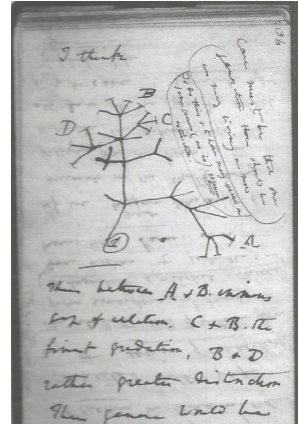 36
I think
B
C
D
A
1
Case must be that one
generation then should be
as many living as now
To do this & to have many species in
same genus (as is) requires
extinction.
Thus between A & B. immense
gap of relation. C & B. the
finest gradation, B & D
rather greater distinction
Thus genera would be